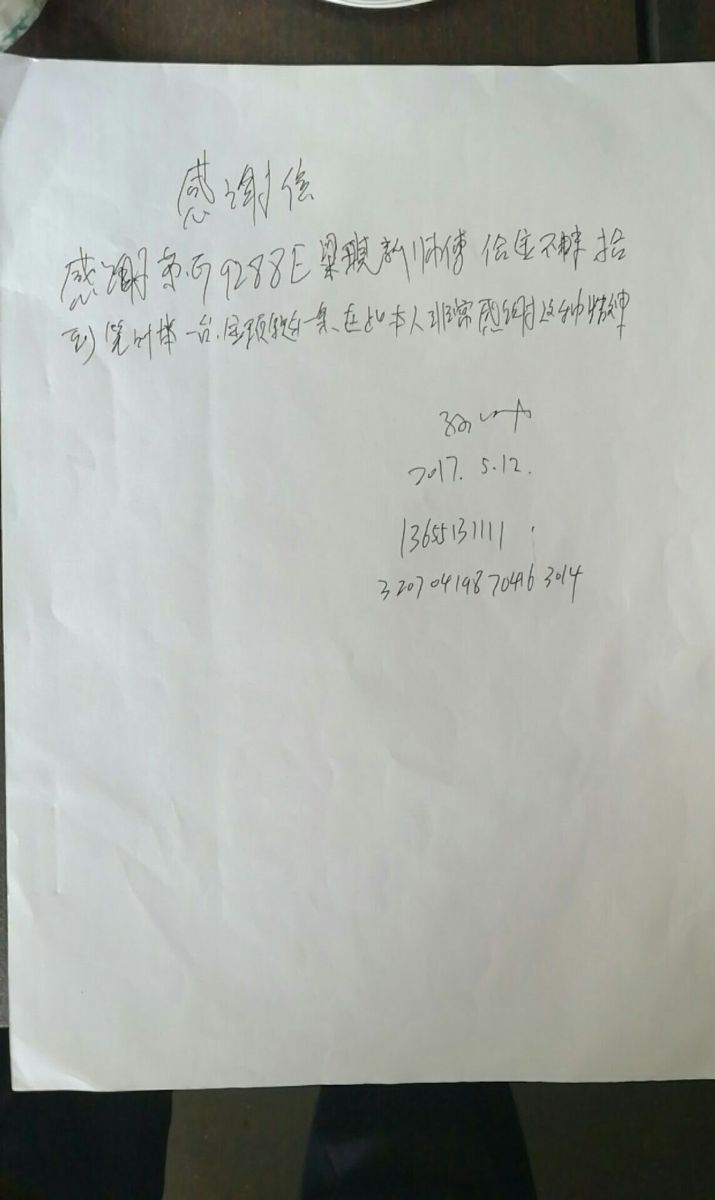 感谢信
感谢京G9288E梁 新师傅 拾金不昧 拾
到笔记本一台.金项链一条.在此本人非常感谢这种精神
2017. 5.12.
13655131111
320704198704163014